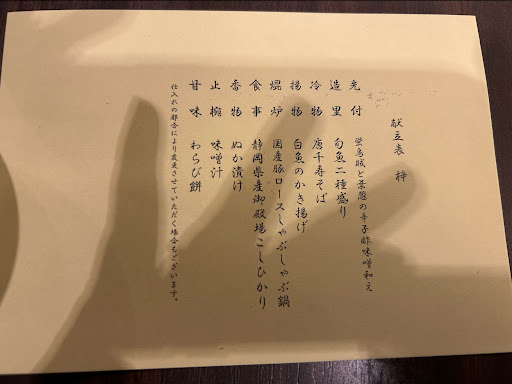 献立表　梓
先付　蛍烏賊と葉葱の辛子酢味噌和え
造里　旬魚二種盛り
冷物　唐千寿そば
揚物　白魚のかき揚げ
焜炉　国産豚ロースしゃぶしゃぶ鍋
食事　静岡県産御殿場こしひかり
香物　ぬか漬け
止椀　味噌汁
甘味　わらび餅
仕入れの都合により変更させていただく場合もございます。